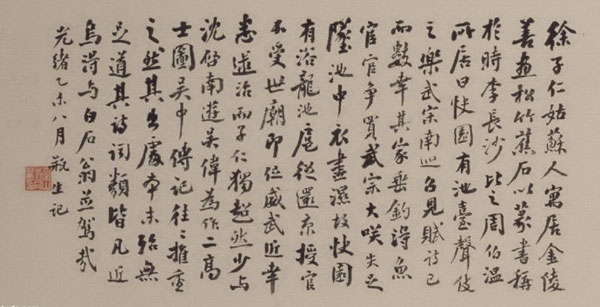 徐子仁姑蘇人寓居金陵
善畫松竹蕉石以篆書稱
於時李長沙比之周伯温
所居曰快園有池臺聲伎
之樂武宗南巡召見賦詩已
而數幸其家垂釣得魚
宦官争買武宗大咲失足
墜池中衣盡濕故快園
有浴龍池扈從還京授官
不受世廟即位威武近幸
悉逮治而子仁獨超然少与
沈啓南遊吴偉為作二高
士圖吴中傳記往〻推重
之然其出處本末殆無
足道其詩詞類皆凡近
烏得与白石翁並駕哉
光緒乙未八月瓶生記